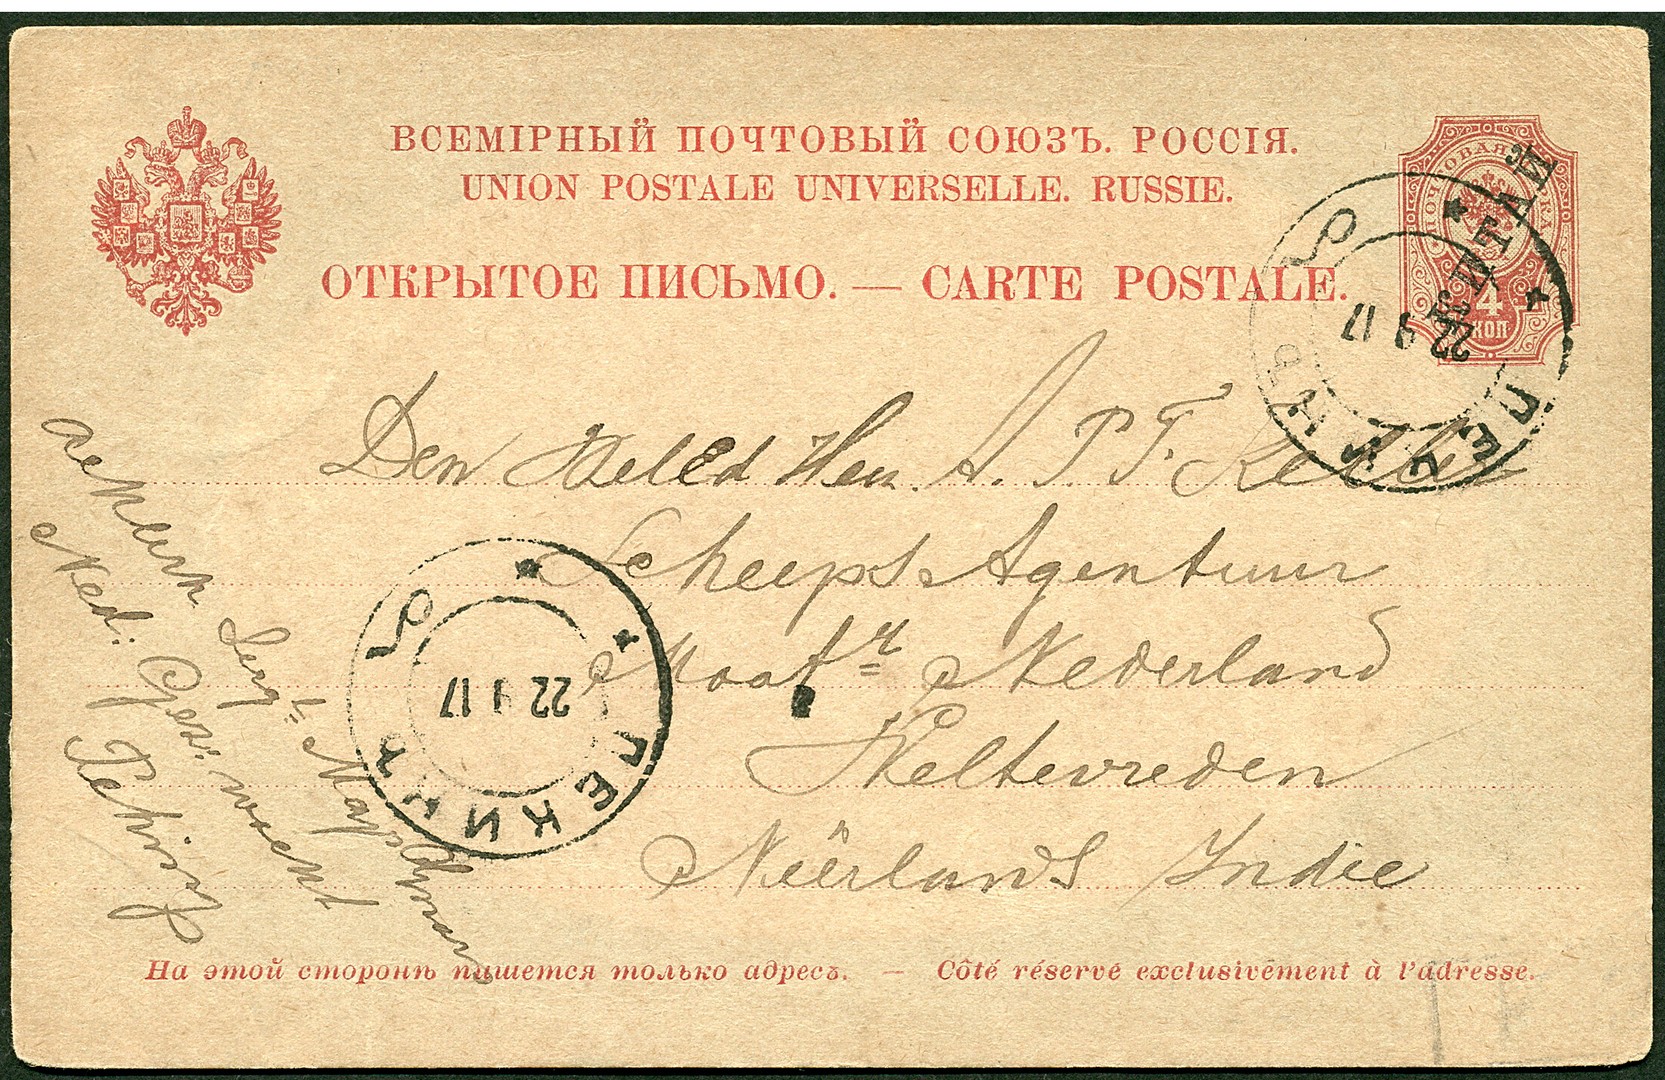 ВСЕМІРНЫЙ ПОЧТОВЫЙ СОЮЗЪ. РОССІЯ.
UNION POSTALE UNIVERSELLE. RUSSIE.
ОТКРЫТОЕ ПИСЬМО. — CARTE POSTALE.
ПОЧТОВАЯ МАРКА
4
КОП
КИТАЙ
ПЕКИНЪ
22 9 17
Den Heer A. P. F.
Scheeps Agentuur
Maatʳ Nederland
Weltevreden
Nëerlands Indie
ПЕКИНЪ
22 9 17
Ned: Gez: wacht
Peking
На этой сторонѣ пишется только адресъ. — Côté réservé exclusivement à l'adresse.